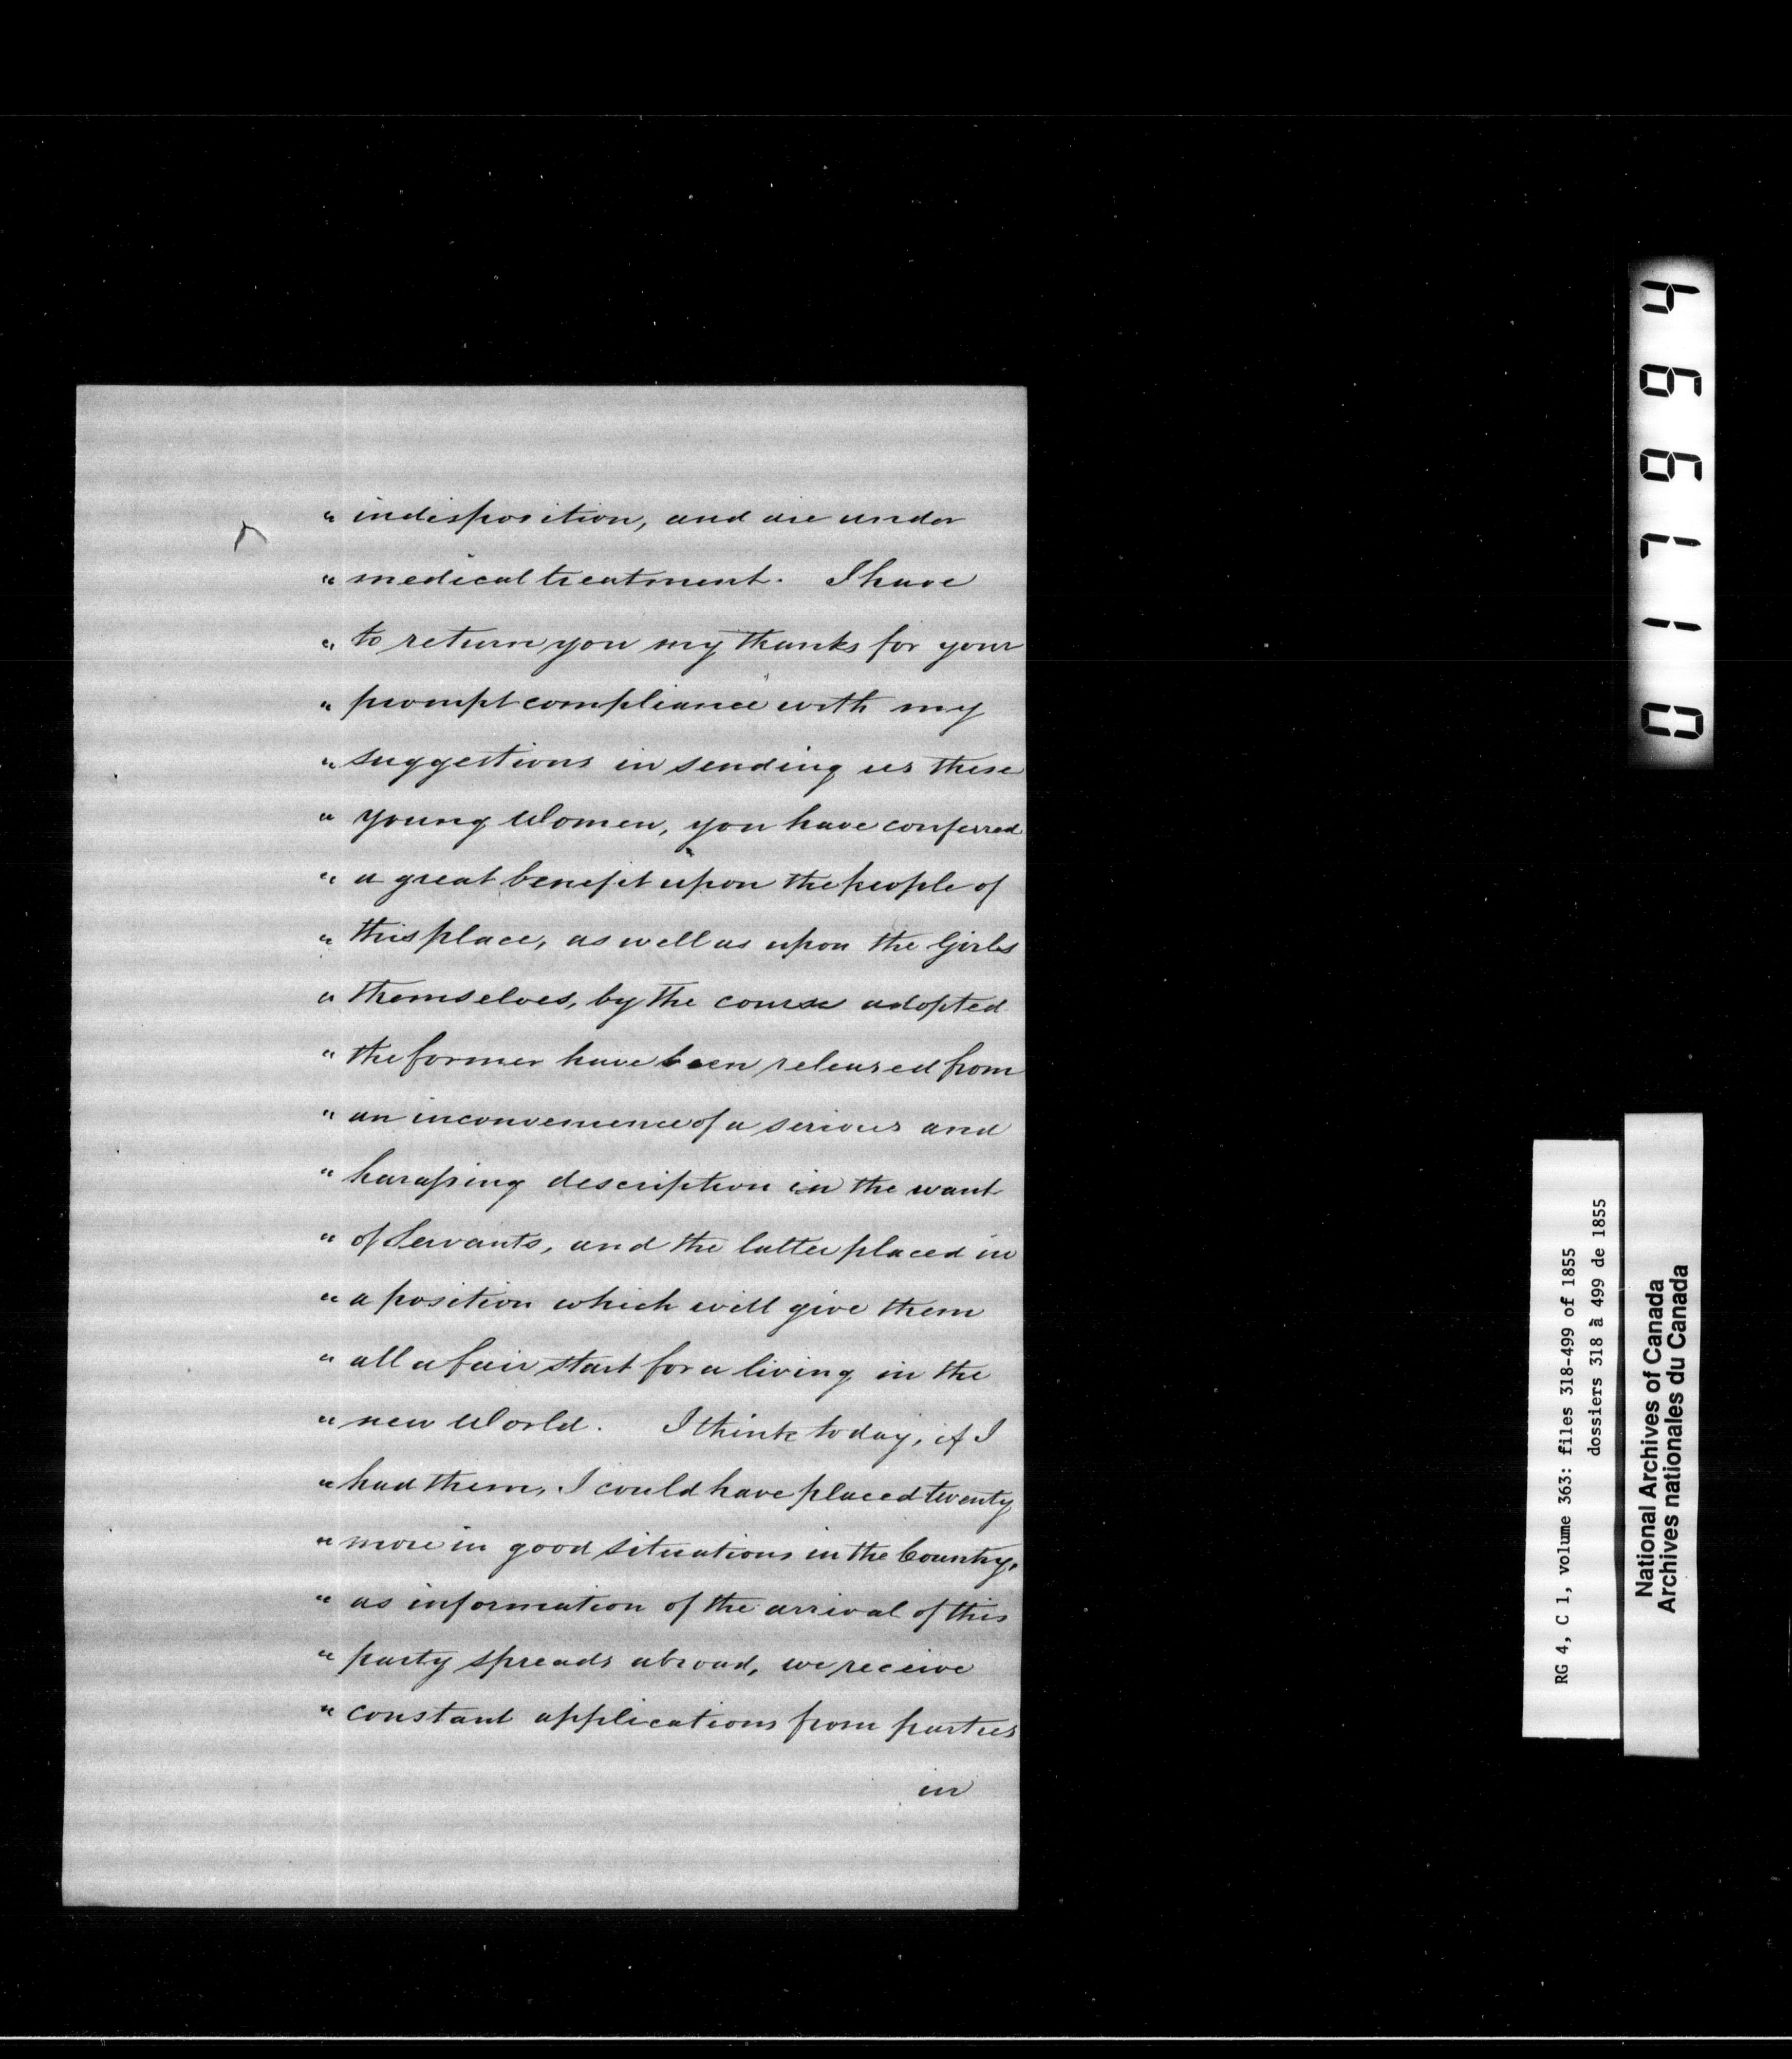 " indisposition, and are under
" medical treatment. I have
" to return you my thanks for your
" prompt compliance with my
" suggestions in sending us these
" young Women, you have conferred
" a great benefit upon the people of
" this place, as well as upon the Girls
" themselves, by the course adopted
" the former have been released from
" an inconvenience of a serious and
" harassing description in the want
" of Servants, and the latter placed in
" a position which will give them
" all a fair start for a living in the
" new World. I think today, if I
" had them, I could have placed twenty
" more in good situations in the Country,
" as information of the arrival of this
" party spreads abroad, we receive
" constant applications from parties
in
017664
RG 4, C 1, volume 363: files 318-499 of 1855
dossiers 318 à 499 de 1855
National Archives of Canada
Archives nationales du Canada